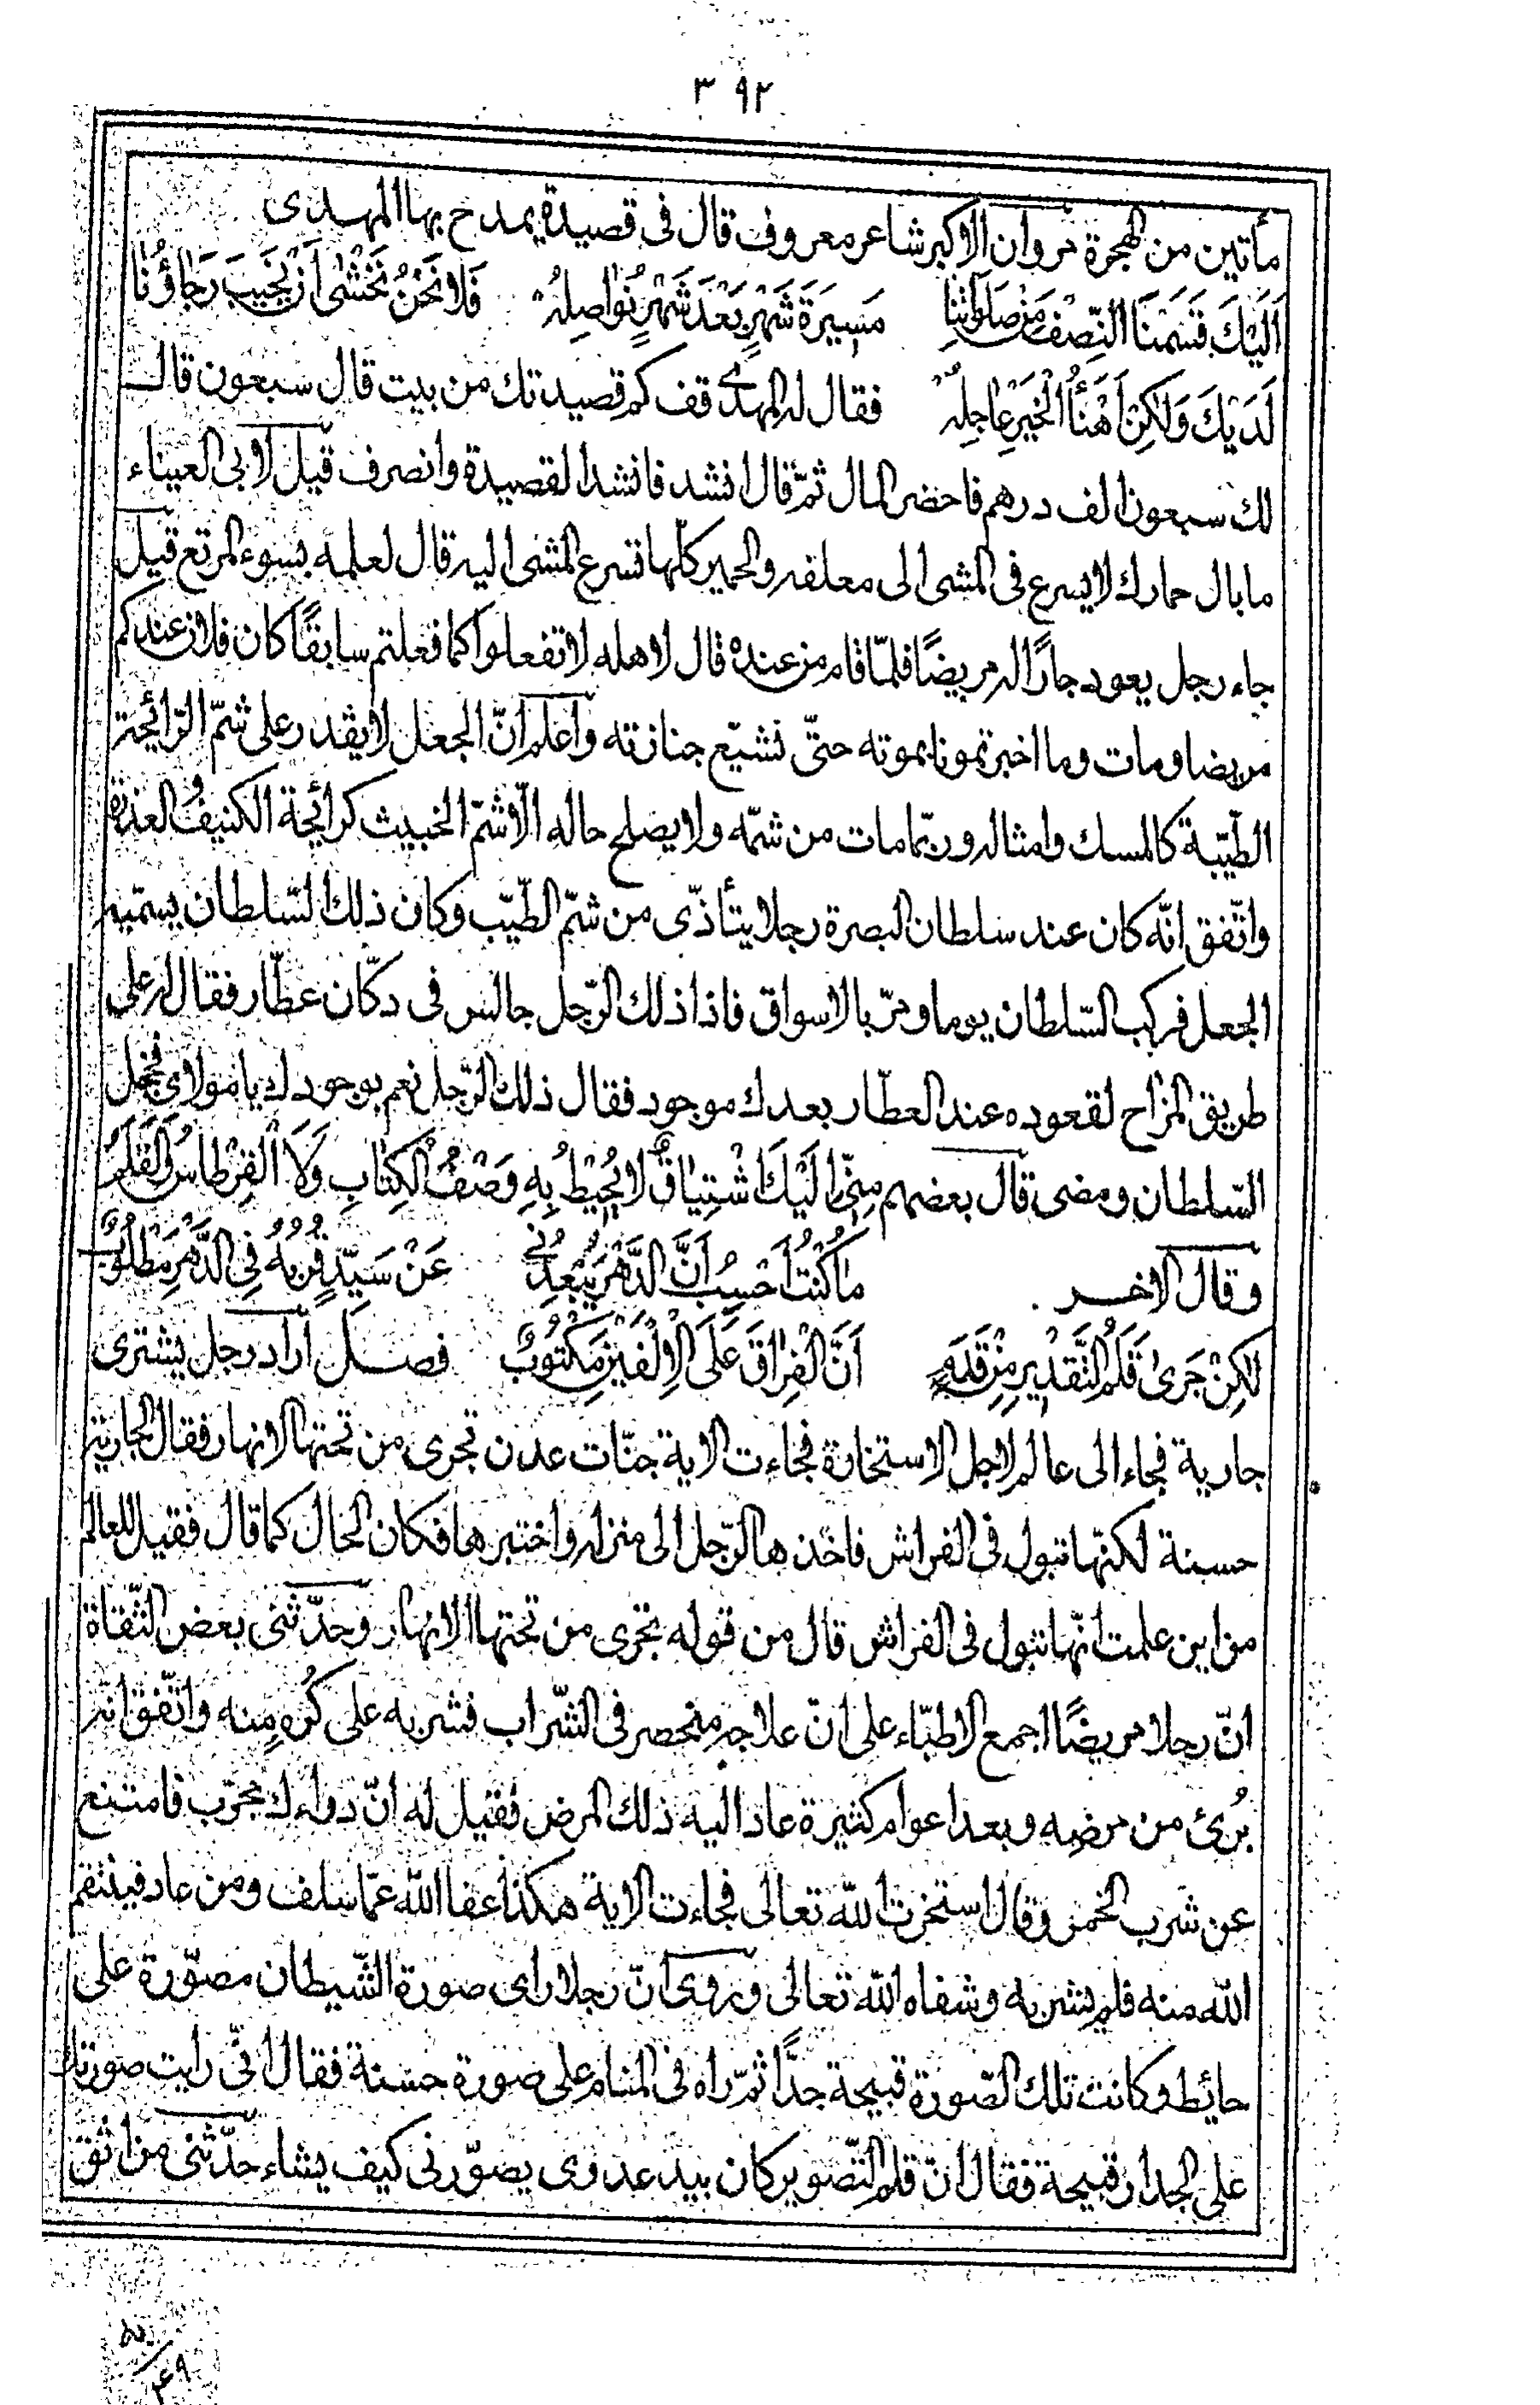 ٣٩٢
مأتين من الهجرة مروان الاكبر شاعر معروف قال فى قصيدة يمدح بها المهدى
اَلَيْكَ قَسَمْنَا النِّصْفَ مِنْ صَلَوٰاتِنٰا مَسِيرَةَ شَهْرٍ بَعْدَ شَهْرٍ نُوٰاصِلُهْ فَلاٰ نَحْنُ نَخْشٰى اَنْ يَخِيبَ رَجٰاؤُنٰا
لَدَيْكَ وَلٰكِنْ اَهْنَأُ الْخَيْرِ عٰاجِلُهْ فقال له المهدى قف كم قصيدتك من بيت قال سبعون قال
لك سبعون الف درهم فاحضر المال ثمّ قال انشد فانشد القصيدة وانصرف قيل لابى العيناء
ما بال حمارك لا يسرع فى المشى الى معلفه والحمير كلّها تسرع المشى اليه قال لعلمه بسوء المرتع قيل
جاء رجل يعود جارًا له مريضًا فلمّا قام من عنده قال لاهله لا تفعلوا كما فعلتم سابقًا كان فلان عندكم
مريضا ومات وما اخبرتمونا بموته حتّى نشيّع جنازته واعلم انّ الجعل لا يقدر على شمّ الرّائحة
الطّيّبة كالمسك وامثاله وربّما مات من شمّه ولا يصلح حاله الّا شمّ الخبيث كرائحة الكنيف والعذرة
واتّفق انّه كان عند سلطان البصرة رجلا يتأذّى من شمّ الطّيّب وكان ذلك السّلطان يسمّيه
الجعل فركب السّلطان يوما ومرّ بالاسواق فاذا ذلك الرّجل جالس فى دكّان عطّار فقال له على
طريق المزاح لقعوده عند العطّار بعدك موجود فقال ذلك الرّجل نعم بوجودك يا مولاى فخجل
السّلطان ومضى قال بعضهم مِنّى اِلَيْكَ اشْتِيٰاقٌ لاٰ يُحِيْطُ بِهِ وَصْفُ الْكِتٰابِ وَلَا الْقِرْطٰاسُ وَالْقَلَمُ
وقال الاخر مٰا كُنْتُ اَحْسِبُ اَنَّ الدَّهْرَ يُبْعِدُنِي عَنْ سَيِّدٍ قُرْبُهُ فِى الدَّهْرِ مَطْلُوبٌ
لٰكِنْ جَرىٰ قَلَمُ التَّقْدِيرِ مِنْ قِدَمٍ اَنَّ الْفِرٰاقَ عَلَى الْاِلْفَيْنِ مَكْتُوبٌ فصل اراد رجل يشترى
جارية فجاء الى عالم لاجل الاستخارة فجاءت الاية جنّات عدن تجرى من تحتها الانهار فقال الجارية
حسنة لكنّها تبول فى الفراش فاخذها الرّجل الى منزله واختبرها فكان الحال كما قال فقيل للعالم
من اين علمت انّها تبول فى الفراش قال من قوله تجرى من تحتها الانهار وحدّثنى بعض الثّقاة
انّ رجلا مريضًا اجمع الاطبّاء على انّ علاجه منحصر فى الشّراب فشربه على كُرهٍ منه واتّفق انّه
بُرئ من مرضِه وبعد اعوام كثيرة عاد اليه ذلك المرض فقيل له انّ دواءك مجرّب فامتنع
عن شرب الخمر وقال استخرت اللّه تعالى فجاءت الاية هكذا عفا اللّه عمّا سلف ومن عاد فينتقم
اللّه منه فلم يشربه وشفاه اللّه تعالى وروى انّ رجلا راى صورة الشّيطان مصوّرة على
حائط وكانت تلك الصّورة قبيحة جدًّا ثمّ راه فى المنام على صورة حسنة فقال انّى رايت صورتك
على الجدار قبيحة فقال انّ قلم التّصوير كان بيد عدوى يصوّرنى كيف يشاء حدّثنى من اثق